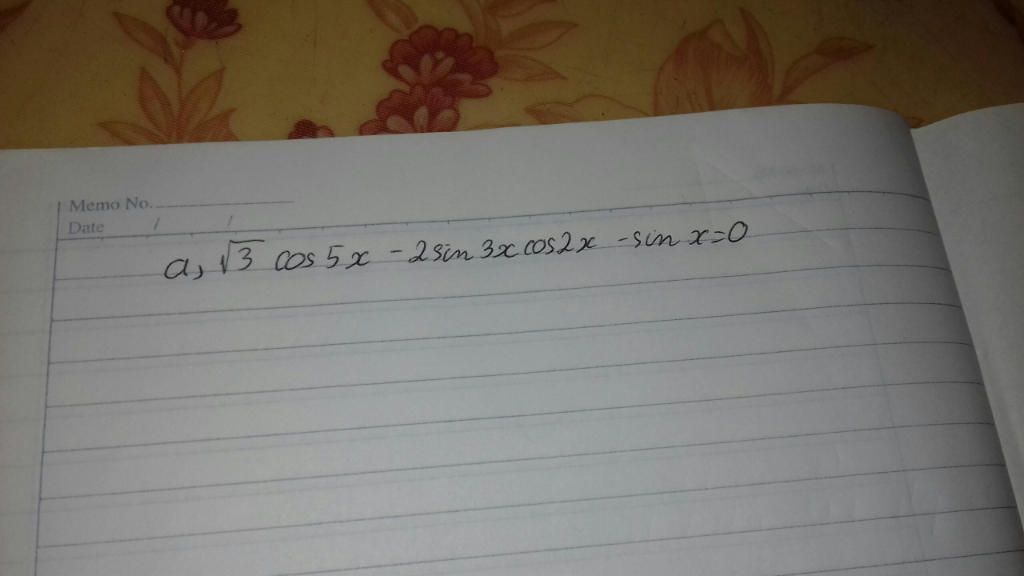 Memo No.
Date / /
a, √3 cos 5x - 2 sin 3x cos2x - sin x = 0